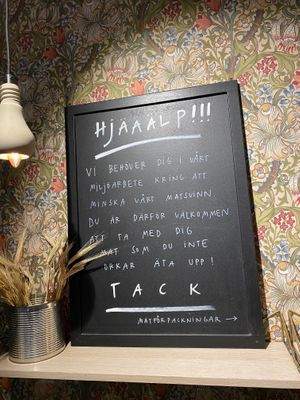 HJÄÄALP!!!
VI BEHÖVER DIG I VÅRT
MILJÖARBETE KRING ATT
MINSKA VÅRT MATSVINN
DU ÄR DÄRFÖR VÄLKOMMEN
ATT TA MED DIG
MAT SOM DU INTE
ORKAR ÄTA UPP!
TACK
MATFÖRPACKNINGAR →